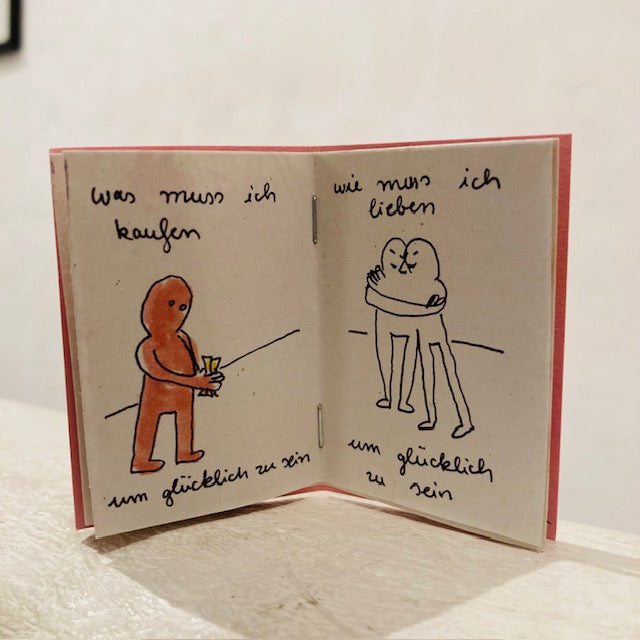 was muss ich
kaufen
um glücklich zu sein
wie muss ich
lieben
um glücklich
zu sein